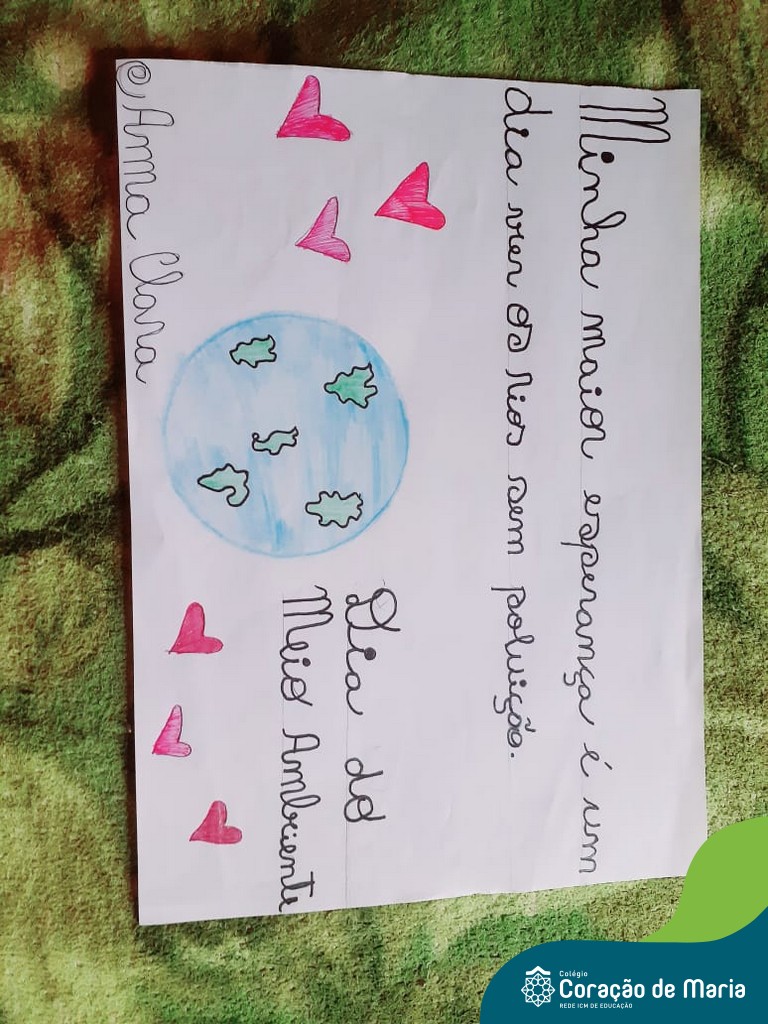 Minha maior esperança é um
dia ver os rios sem poluição.
Dia do
Meio Ambiente
@Anna Clara
Colégio
Coração de Maria
REDE ICM DE EDUCAÇÃO